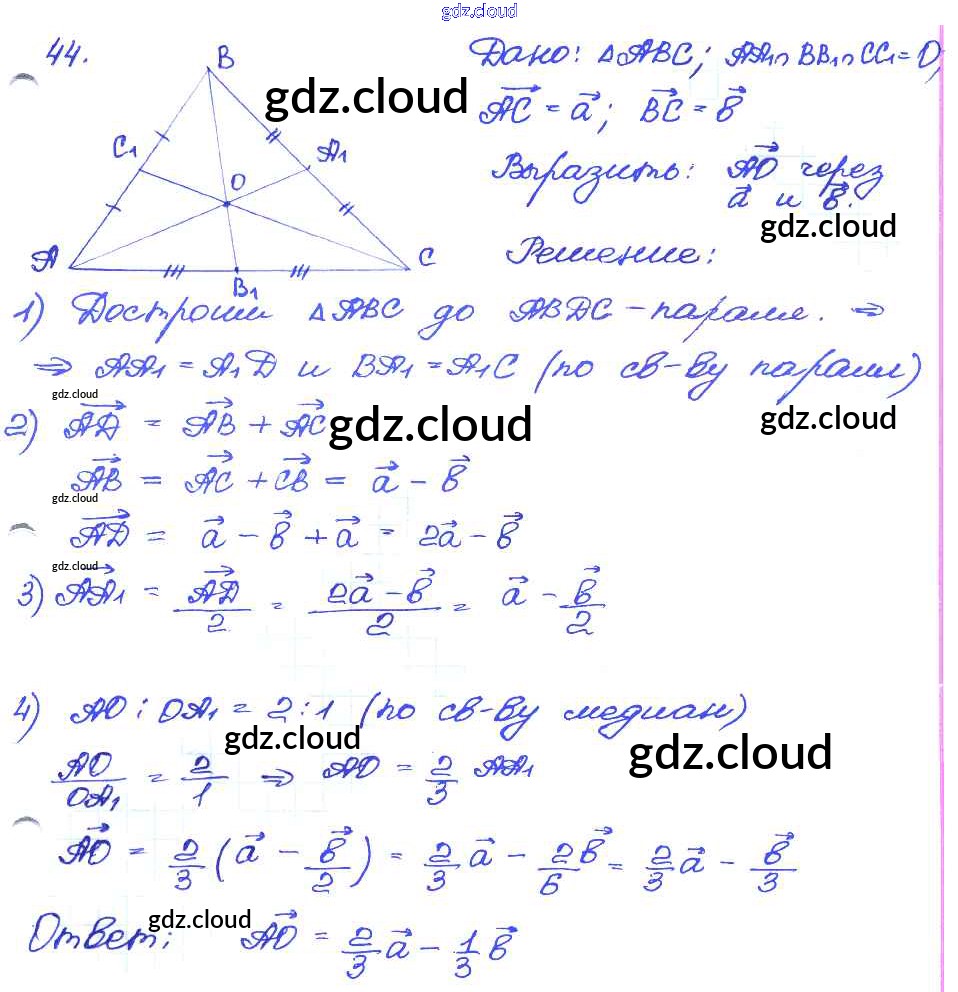 gdz.cloud
44.
B
C₁
A₁
O
A
B₁
C
Дано: △ABC; AA₁∩BB₁∩CC₁=O,
gdz.cloud
AC⃗ = a⃗; BC⃗ = b⃗
Выразить: AO⃗ через
a⃗ и b⃗.
gdz.cloud
Решение:
1) Достроим △ABC до ABDC – паралл. ⇒
⇒ AA₁ = A₁D и BA₁ = A₁C (по св-ву паралл)
gdz.cloud
2) AD⃗ = AB⃗ + AC⃗
gdz.cloud
gdz.cloud
AB⃗ = AC⃗ + CB⃗ = a⃗ – b⃗
gdz.cloud
AD⃗ = a⃗ – b⃗ + a⃗ = 2a⃗ – b⃗
gdz.cloud
3) AA₁⃗ = AD⃗/2 = (2a⃗ – b⃗)/2 = a⃗ – b⃗/2
4) AO : OA₁ = 2:1 (по св-ву медиан)
gdz.cloud
gdz.cloud
AO/OA₁ = 2/1 ⇒ AO = 2/3 AA₁
AO⃗ = 2/3 (a⃗ – b⃗/2) = 2/3 a⃗ – 2/6 b⃗ = 2/3 a⃗ – b⃗/3
gdz.cloud
Ответ: AO⃗ = 2/3 a⃗ – 1/3 b⃗